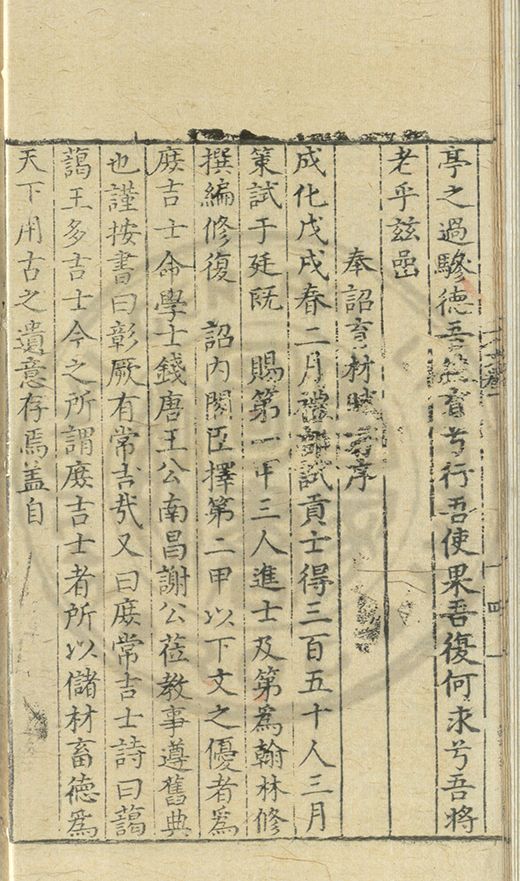 亭之過驂德吾兮行吾使果吾復何求兮吾將
老乎兹嵒
奉詔育材序
成化戊戌春二月禮部試貢士得三百五十人三月
策試于廷既　賜第一甲三人進士及第爲翰林修
撰編修復　詔内閣臣擇第二甲以下文之優者爲
庶吉士命學士錢唐王公南昌謝公莅教事遵舊典
也謹按書曰彰厥有常吉㢤又曰庶常吉士詩曰藹
藹王多吉士今之所謂庶吉士者所以儲材畜德爲
天下用古之遺意存焉盖自
四